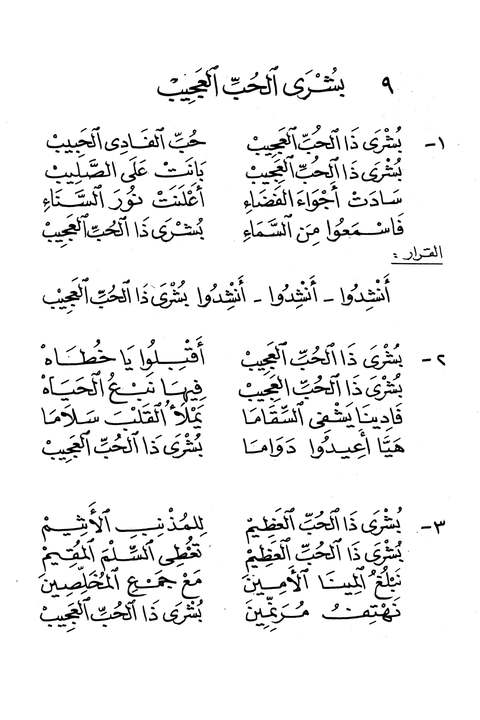 ٩ بُشْرَى ٱلحُبِّ ٱلعَجِيبْ
١- بُشْرَى ذَا ٱلحُبِّ ٱلعَجِيبْ حُبِّ ٱلفَادِي ٱلحَبِيبْ
بُشْرَى ذَا ٱلحُبِّ ٱلعَجِيبْ بَانَتْ عَلَى ٱلصَّلِيبْ
سَادَتْ أَجْوَاءَ ٱلفَضَاءِ أَعْلَنَتْ نُورَ ٱلسَّنَاءِ
فَاسْمَعُوا مِنَ ٱلسَّمَاءِ بُشْرَى ذَا ٱلحُبِّ ٱلعَجِيبْ
القرار :
أَنْشِدُوا - أَنْشِدُوا - أَنْشِدُوا بُشْرَى ذَا ٱلحُبِّ ٱلعَجِيبْ
٢- بُشْرَى ذَا ٱلحُبِّ ٱلعَجِيبْ أَقْبِلُوا يَا خُطَاهْ
بُشْرَى ذَا ٱلحُبِّ ٱلعَجِيبْ فِيهَا نَبْعُ ٱلحَيَاهْ
فَادِينَا يَشْفِي ٱلسِّقَامَا يَمْلَأُ ٱلقَلْبَ سَلَامَا
هَيَّا أَعِيدُوا دَوَامَا بُشْرَى ذَا ٱلحُبِّ ٱلعَجِيبْ
٣- بُشْرَى ذَا ٱلحُبِّ ٱلعَظِيمْ لِلمُذْنِبِ ٱلأَثِيمْ
بُشْرَى ذَا ٱلحُبِّ ٱلعَظِيمْ تُعْطِي ٱلسِّلْمَ ٱلمُقِيمْ
نَبْلُغُ ٱلمِينَا ٱلأَمِينَ مَعْ جَمْعِ ٱلمُخَلَّصِينَ
نَهْتِفُ مُرَنِّمِينَ بُشْرَى ذَا ٱلحُبِّ ٱلعَجِيبْ